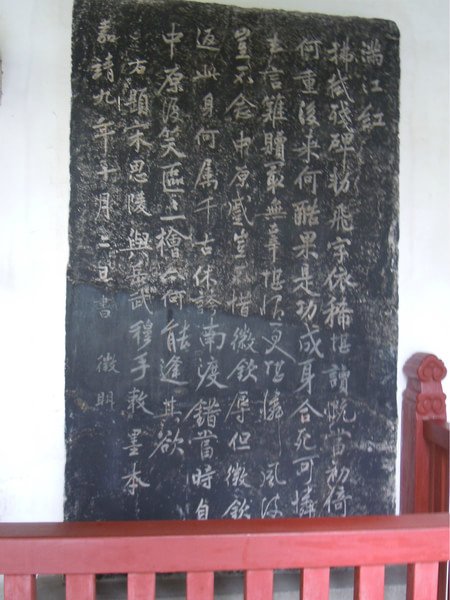 滿江紅
拂拭殘碑勑飛字依稀堪讀慨當初倚
何重後來何酷果是功成身合死可憐
去言難贖最無辜堪恨更堪憐風波
豈不念中原蹙豈不惜徽欽辱但徽欽
返此身何属千古休誇南渡錯當時自
中原復笑區〻一檜亦何能逢其欲
右題宋思陵與岳武穆手敕墨本
嘉靖九年十月二日書 徵明